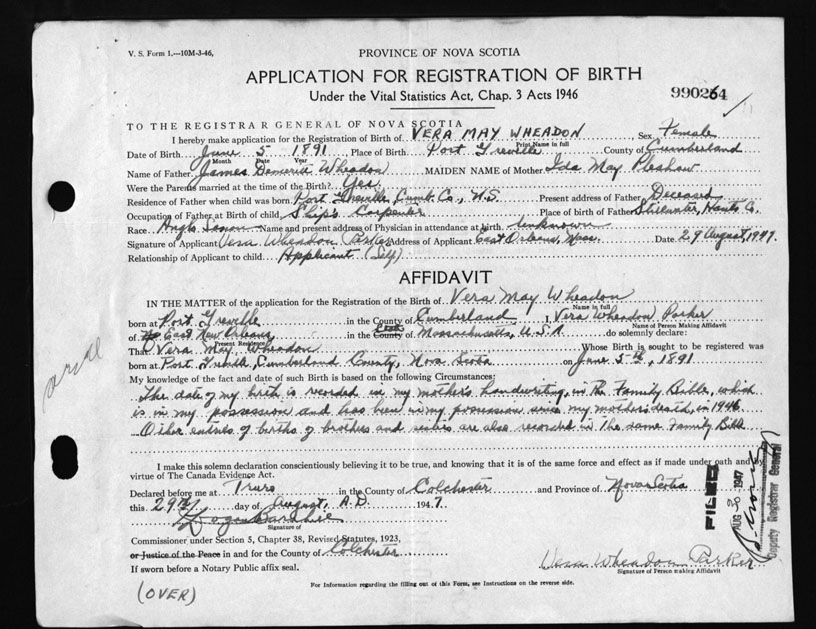 V. S. Form 1.—10M-3-46,
PROVINCE OF NOVA SCOTIA
APPLICATION FOR REGISTRATION OF BIRTH
Under the Vital Statistics Act, Chap. 3 Acts 1946
990264
TO THE REGISTRAR GENERAL OF NOVA SCOTIA
I hereby make application for the Registration of Birth of VERA MAY WHEADON Sex Female
Print Name in full
Date of Birth June 5 1891 Place of Birth Port Greville County of Cumberland
Month Date Year
Name of Father James Demerice Wheadon MAIDEN NAME of Mother Ida May
Were the Parents married at the time of the Birth? Yes
Residence of Father when child was born Port Greville, Cumb. Co., N.S. Present address of Father Deceased
Occupation of Father at Birth of child Ship's Carpenter Place of birth of Father Stillwater, Hants Co.
Race Anglo Saxon Name and present address of Physician in attendance at birth Unknown
Signature of Applicant Vera Wheadon Parker Address of Applicant East Orleans, Mass. Date 29 August, 1947.
Relationship of Applicant to child Applicant (Self)
AFFIDAVIT
IN THE MATTER of the application for the Registration of the Birth of Vera May Wheadon
Name in full
born at Port Greville in the County of Cumberland I, Vera Wheadon Parker
Name of Person Making Affidavit
of East New Orleans in the County of Massachusetts, U.S.A. do solemnly declare:
Present Residence
That Vera May Wheadon Whose Birth is sought to be registered was
born at Port Greville, Cumberland County, Nova Scotia on June 5th, 1891
My knowledge of the fact and date of such Birth is based on the following Circumstances:
The date of my birth is recorded in my mother's handwriting, in the Family Bible, which
is in my possession and has been in my possession since my mother's death, in 1946
Other entries of births of brothers and sisters are also recorded in the same Family Bible
I make this solemn declaration conscientiously believing it to be true, and knowing that it is of the same force and effect as if made under oath and by
virtue of The Canada Evidence Act.
Declared before me at Truro in the County of Colchester and Province of Nova Scotia
this 29th day of August, A.D. 1947.
Signature of
Commissioner under Section 5, Chapter 38, Revised Statutes, 1923,
or Justice of the Peace in and for the County of Colchester
If sworn before a Notary Public affix seal.
Vera Wheadon Parker
Signature of Person making Affidavit
For Information regarding the filling out of this Form, see Instructions on the reverse side.
(OVER)
FILED
AUG 30 1947
Deputy Registrar General